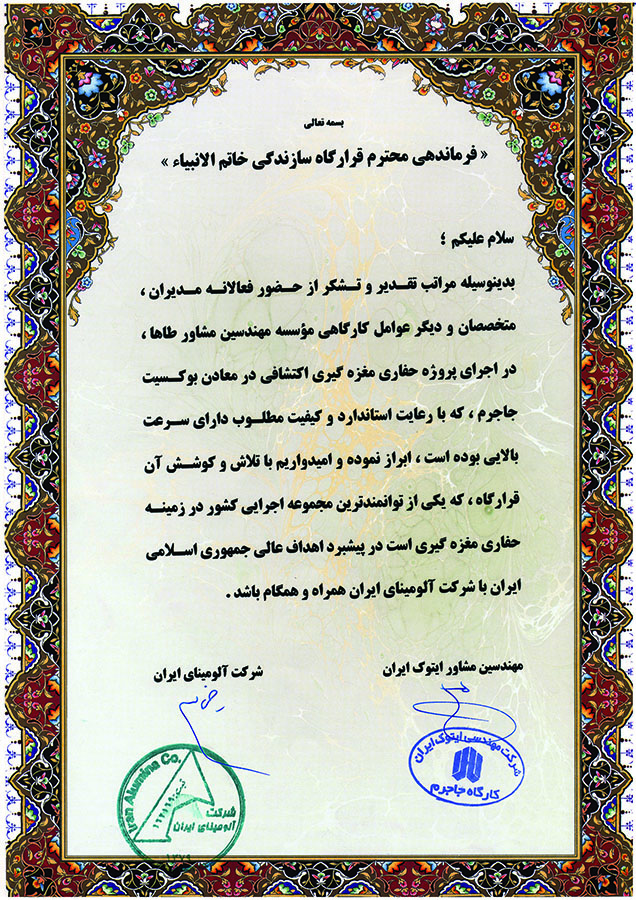 بسمه تعالی
« فرماندهی محترم قرارگاه سازندگی خاتم الانبیاء »
سلام علیکم ؛
بدینوسیله مراتب تقدیر و تشکر از حضور فعالانه مدیران ،
متخصصان و دیگر عوامل کارگاهی مؤسسه مهندسین مشاور طاها ،
در اجرای پروژه حفاری مغزه گیری اکتشافی در معادن بوکسیت
جاجرم ، که با رعایت استاندارد و کیفیت مطلوب دارای سرعت
بالایی بوده است ، ابراز نموده و امیدواریم با تلاش و کوشش آن
قرارگاه ، که یکی از توانمندترین مجموعه اجرایی کشور در زمینه
حفاری مغزه گیری است در پیشبرد اهداف عالی جمهوری اسلامی
ایران با شرکت آلومینای ایران همراه و همگام باشد .
مهندسین مشاور ایتوک ایران
شرکت آلومینای ایران
شرکت مهندسی ایتوک ایران
کارگاه جاجرم
Iran Alumina Co.
شرکت
آلومینای ایران
۱۳۷۹